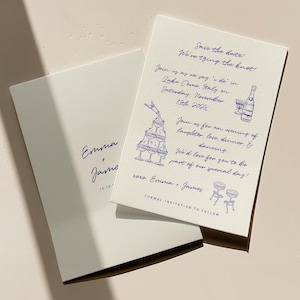 Save the date!
We're tying the knot!
Join us as we say "i do" in
Lake Como, Italy on
Saturday, November
15th 2025
Join us for an evening of
laughter, love, dinner, &
dancing
We'd love for you to be
part of our special day!
xoxo Emma + James
FORMAL INVITATION TO FOLLOW
Emma
+
James